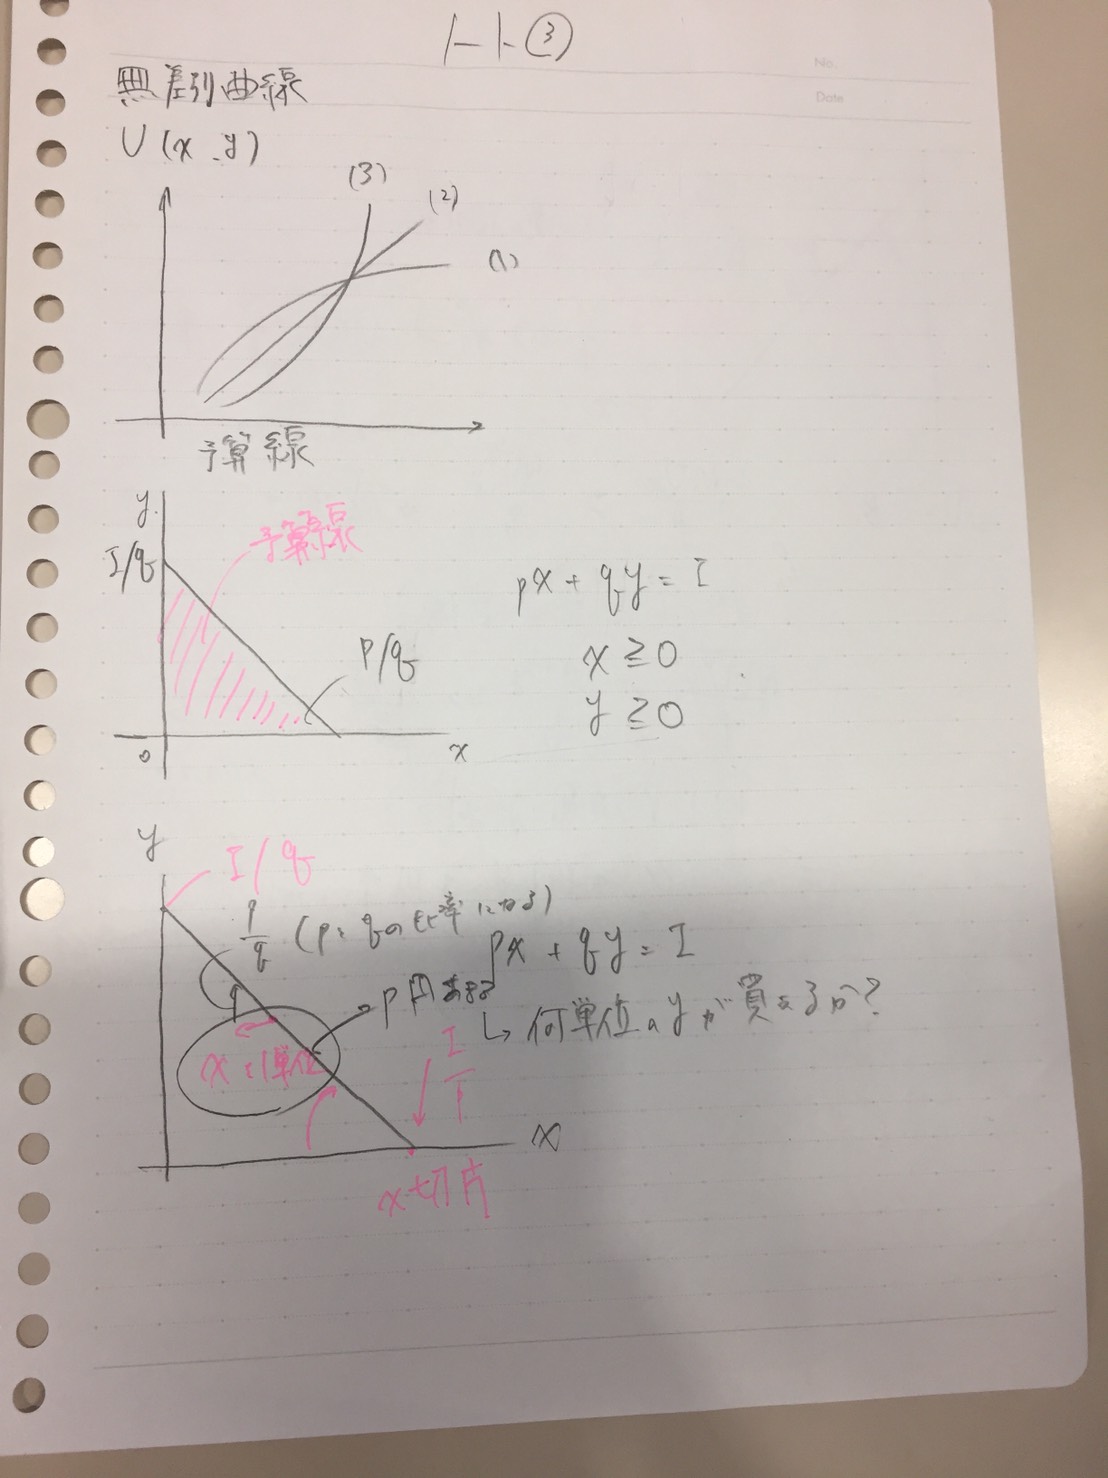 1-1-③
No.
Date
無差別曲線
U(x,y)
(3)
(2)
(1)
予算線
y
I/q
予算線
P/q
px + qy = I
x ≧ 0
y ≧ 0
0
x
y
I/q
p/q (p:qの比率になる)
px + qy = I
p円あまる
↳ 何単位のyが買えるか?
xを1単位
I/p
x
x切片